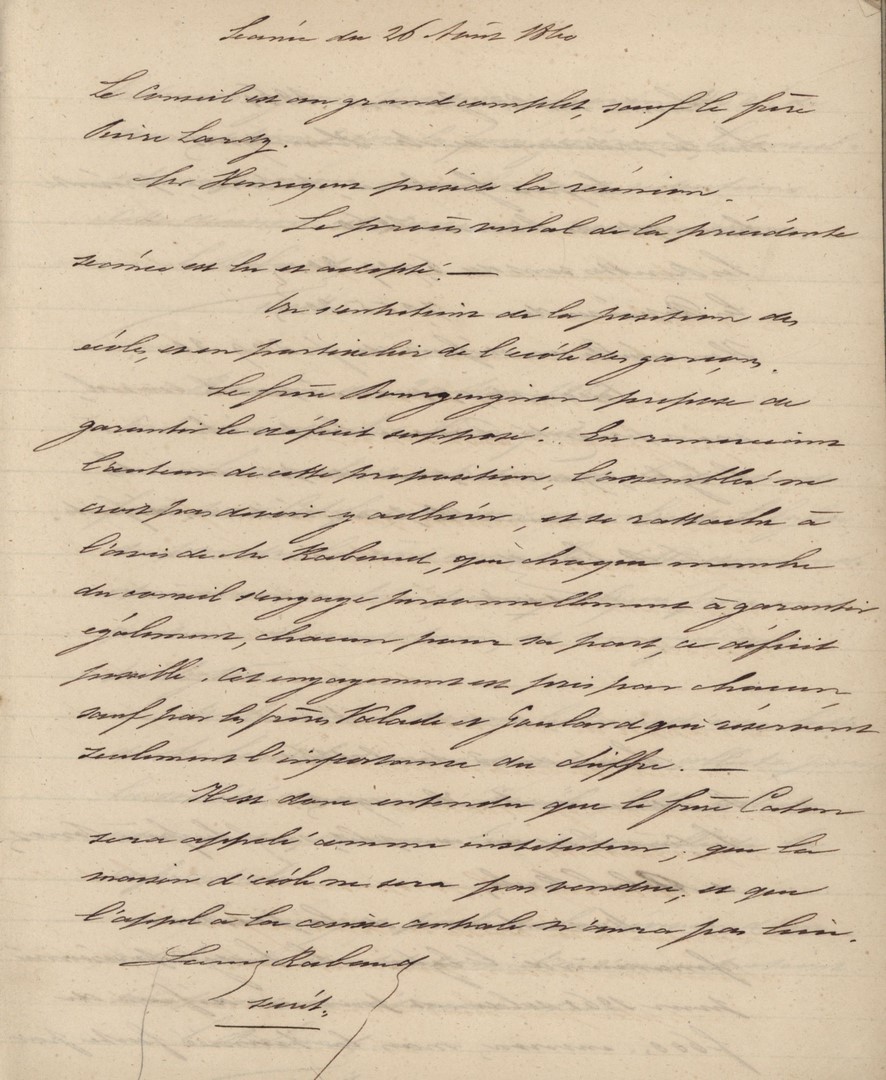 Séance du 26 Août 1860
Le Conseil est au grand complet, sauf le frère
Pierre Lardy.
Mr Henriquet préside la réunion.
Le procès verbal de la précédente
séance est lu et adopté. —
On s'entretient de la position des
écoles, et en particulier de l'école des garçons.
Le frère Bourguignon propose de
garantir le déficit supposé. En remerciant
l'auteur de cette proposition, l'assemblée ne
croit pas devoir y adhérer, et se rattache à
l'avis de Mr Rabaud, que chaque membre
du conseil s'engage personnellement à garantir
également, chacun pour sa part, ce déficit
possible. Cet engagement est pris par chacun
sauf par les frères Valade et Goulard qui réservent
seulement l'importance du chiffre. —
Il est donc entendu que le frère Caton
sera appelé comme instituteur, que la
maison d'école ne sera pas vendue, et que
l'appel à la caisse centrale n'aura pas lieu.
Louis Rabaud
secrét.